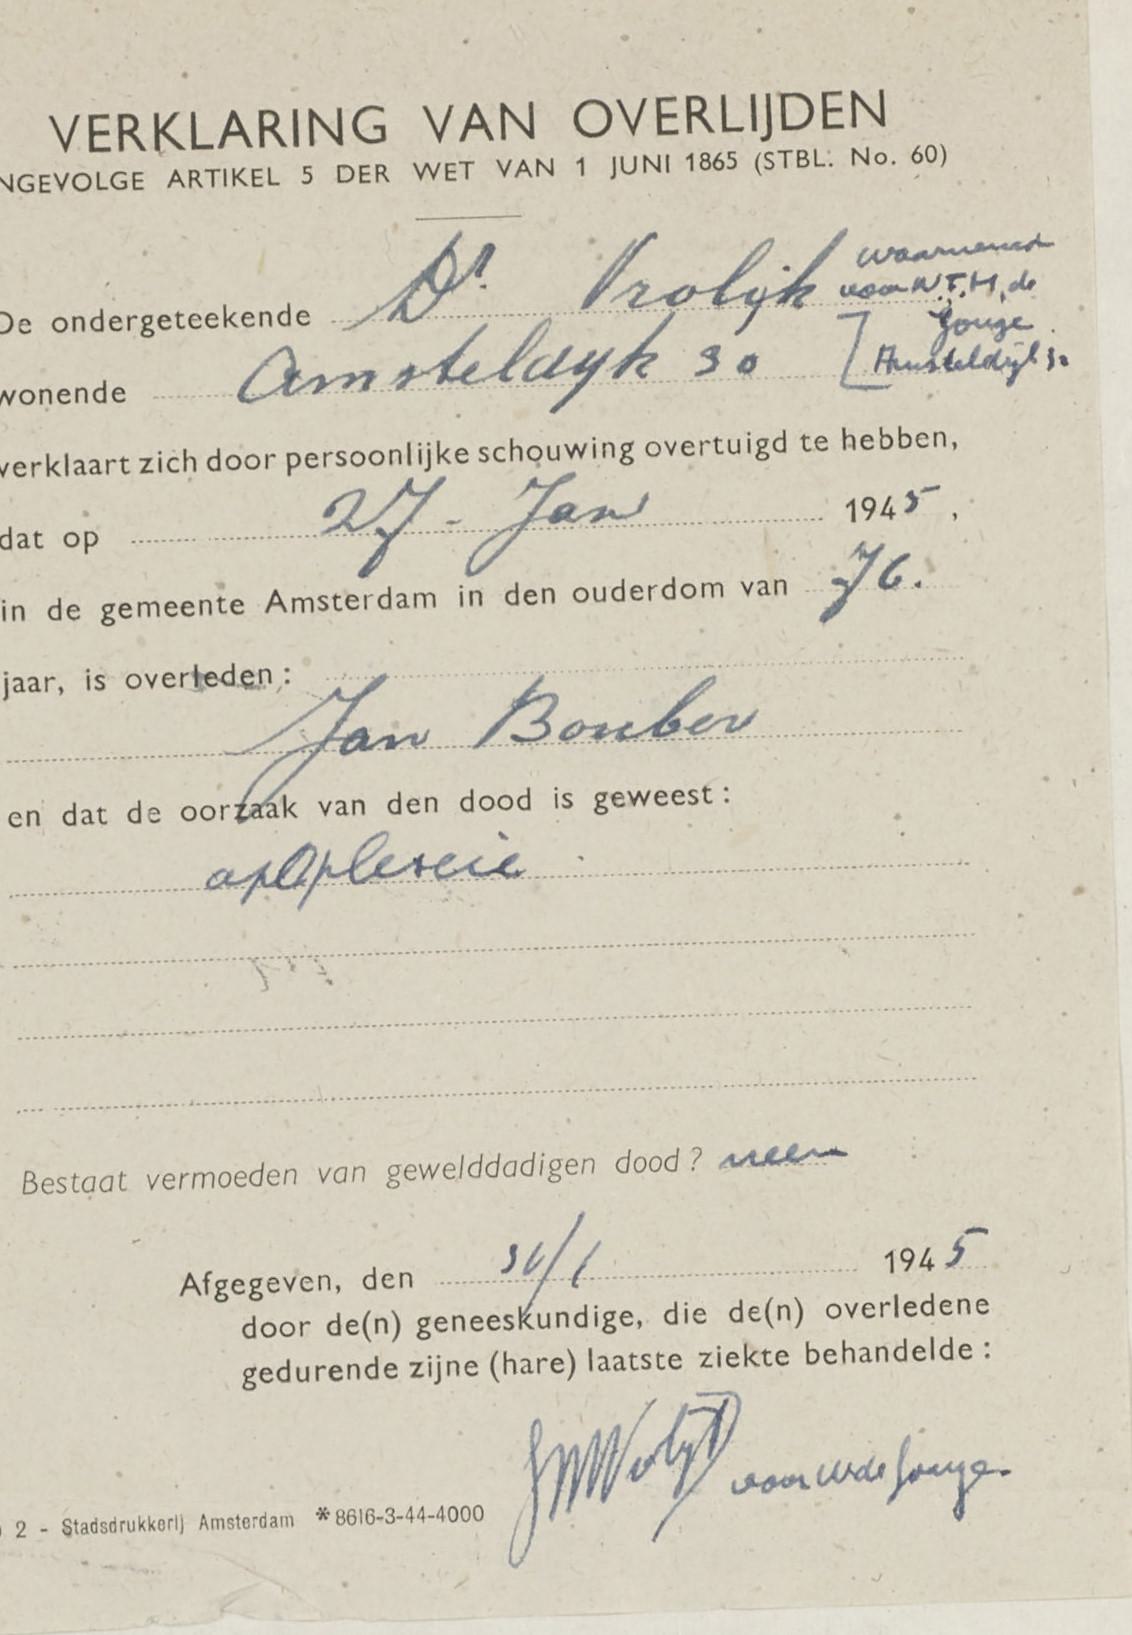 VERKLARING VAN OVERLIJDEN
NGEVOLGE ARTIKEL 5 DER WET VAN 1 JUNI 1865 (STBL. No. 60)
De ondergeteekende Dr. Vrolijk waarnemend
voor N.T.H. de
Jonge
wonende Amsteldijk 30 [Amsteldijk 30
verklaart zich door persoonlijke schouwing overtuigd te hebben,
dat op 27 - Jan 1945,
in de gemeente Amsterdam in den ouderdom van 76.
jaar, is overleden:
Jan Bonber
en dat de oorzaak van den dood is geweest:
apoplexie
Bestaat vermoeden van gewelddadigen dood? neen
Afgegeven, den /1 1945
door de(n) geneeskundige, die de(n) overledene
gedurende zijne (hare) laatste ziekte behandelde:
voor de Jonge
2 - Stadsdrukkerij Amsterdam *8616-3-44-4000